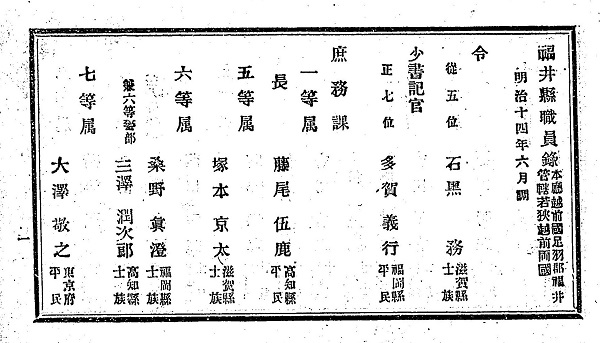 福井縣職員錄 本廳越前國足羽郡福井 管轄若狹越前兩國
明治十四年六月調
令
從五位 石黑 務 滋賀縣士族
少書記官
正七位 多賀義行 福岡縣平民
庶務課
一等属
長 藤尾伍鹿 高知縣平民
五等属
塚本京太 滋賀縣士族
六等属
桑野眞澄 福岡縣士族
兼六等警部 三澤潤次郎 高知縣士族
七等属
大澤敬之 東京府平民
一